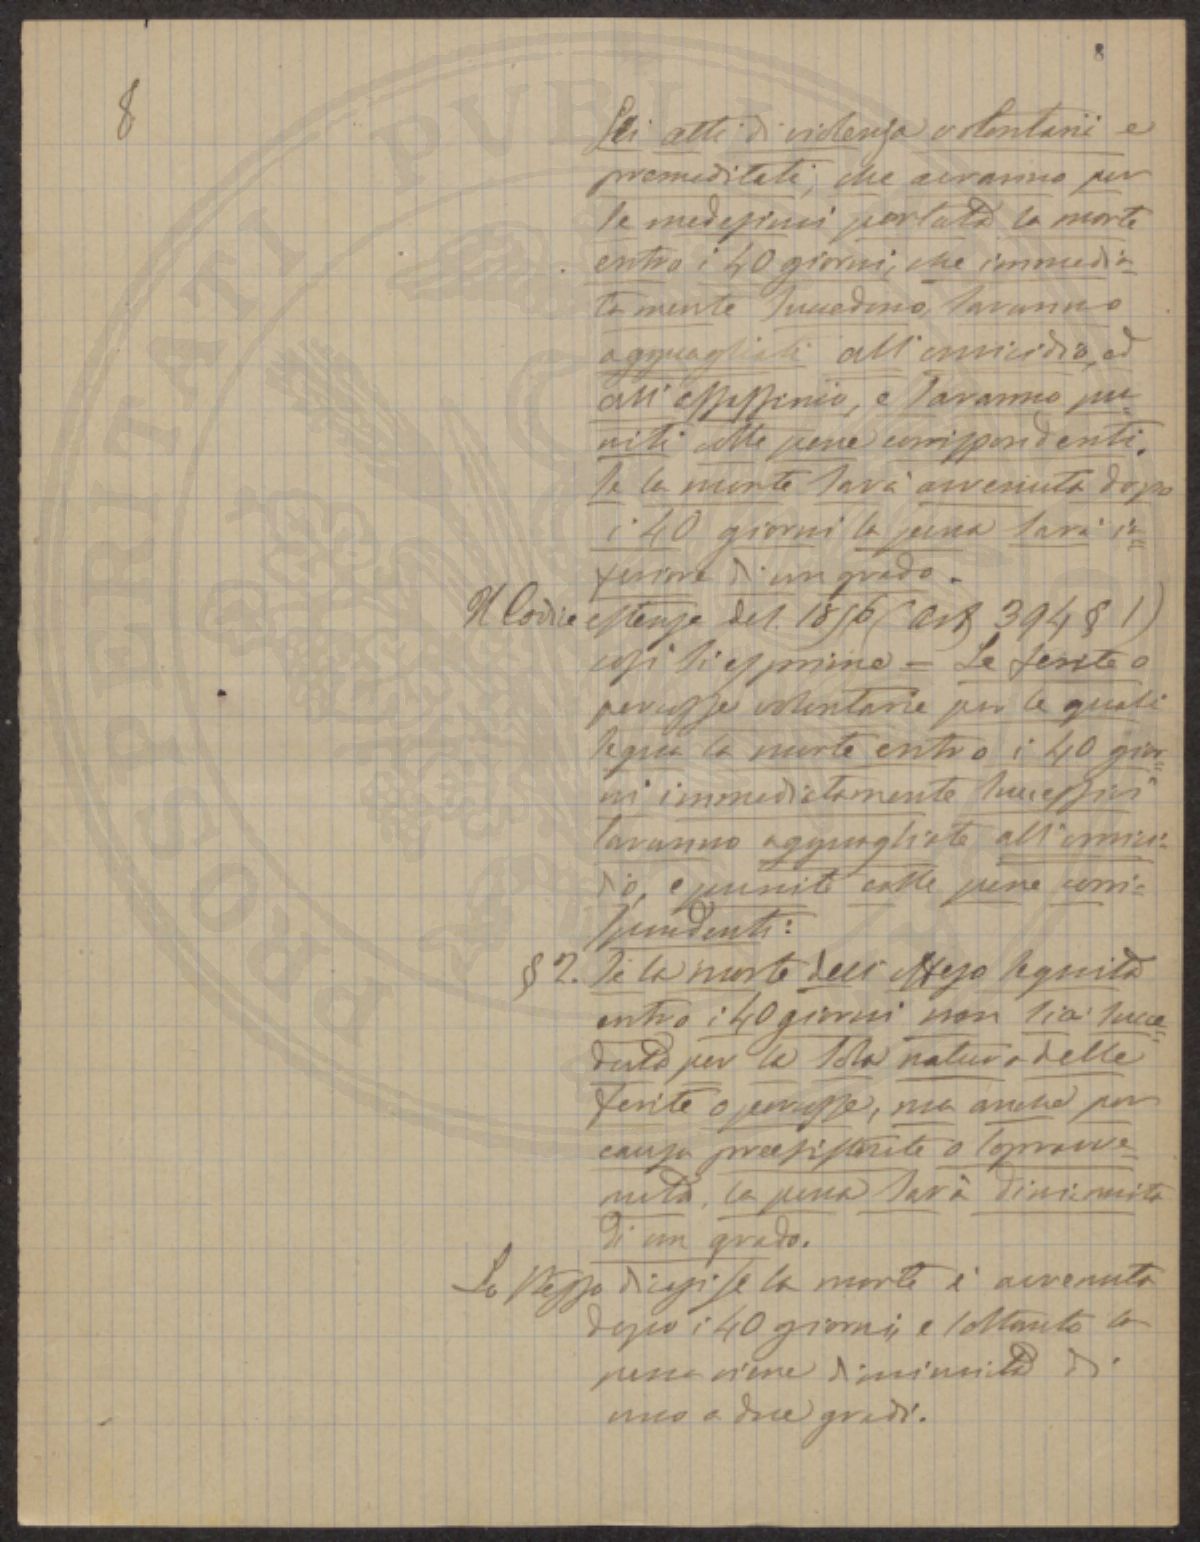 8
8
Gli atti di violenza volontarii e
premeditati, che avranno per
se medesimi portata la morte
entro i 40 giorni, che immedia-
tamente succedono, saranno
agguagliati all'omicidio, ed
all'assassinio, e saranno pu-
niti colle pene corrispondenti.
Se la morte sarà avvenuta dopo
i 40 giorni la pena sarà in-
feriore di un grado.
Il Codice estense del 1856 (art 394 § 1)
così si esprime = Le ferite o
percosse volontarie per le quali
segua la morte entro i 40 gior-
ni immediatamente successivi
saranno agguagliate all'omici-
dio, e punite colle pene corri-
spondenti:
§ 2. Se la morte dell'offeso seguita
entro i 40 giorni non sia succe-
duta per la sola natura delle
ferite o percosse, ma anche per
causa preesistente o sopravve-
nuta, la pena sarà diminuita
di un grado.
Lo stesso dicasi se la morte è avvenuta
dopo i 40 giorni, e soltanto la
pena viene diminuita di
uno a due gradi.
PROSPERITATI PUBLI